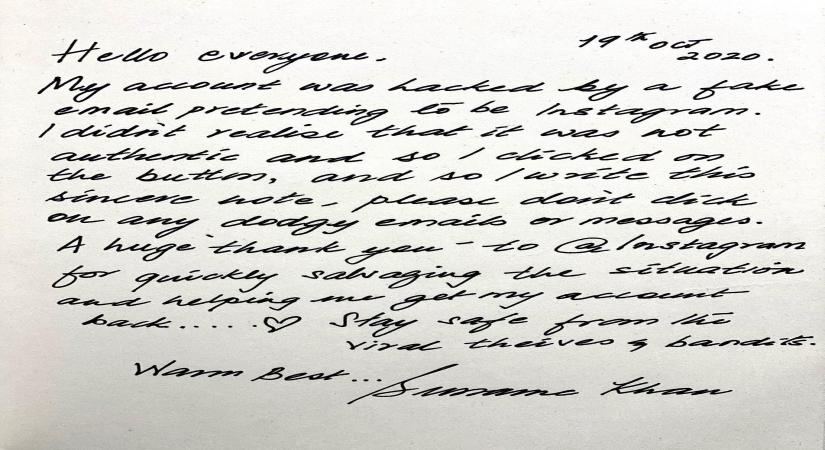 19th Oct
2020.
Hello everyone.
My account was hacked by a fake
email pretending to be Instagram.
I didn't realise that it was not
authentic and so I clicked on
the button, and so I write this
sincere note, please don't click
on any dodgy emails or messages.
A huge thank you - to @Instagram
for quickly salvaging the situation
and helping me get my account
back.....♡ Stay safe from the
viral theives & bandits.
Warm Best...
Khan